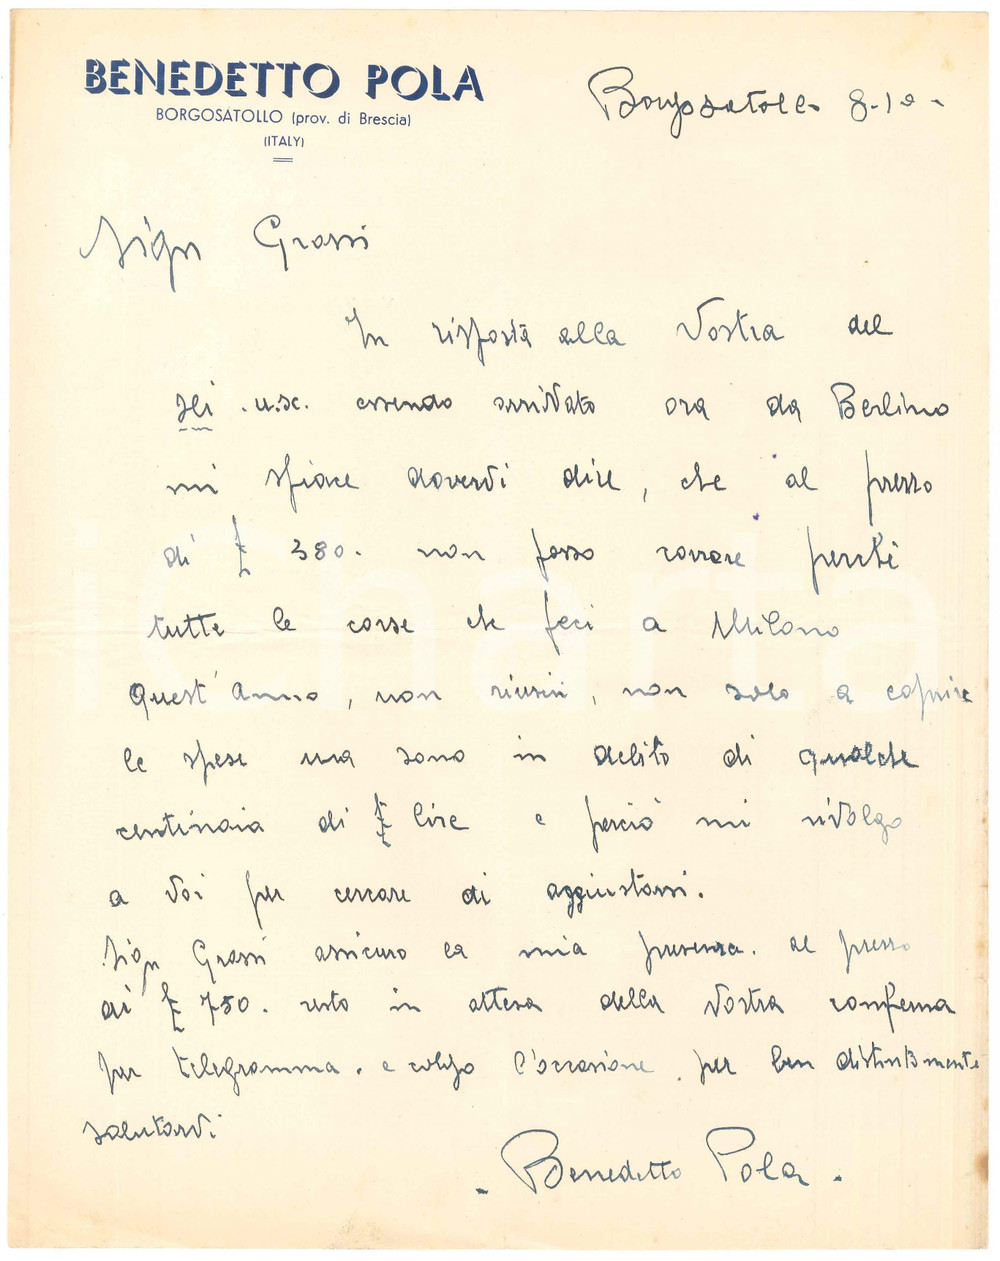 BENEDETTO POLA
BORGOSATOLLO (prov. di Brescia)
(ITALY)
Borgosatollo 8-10-
Sign Grassi
In risposta alla Vostra del
sei .u.sc. essendo arrivato ora da Berlino
mi spiace dovervi dire, che al prezzo
di £ 380. non posso correre perchè
tutte le corse che feci a Milano
quest'anno, non riusii, non solo a coprire
le spese ma sono in debito di qualche
centinaia di £ lire e perciò mi rivolgo
a voi per cercare di aggiustarsi.
Sign Grassi assicuro la mia presenza. al prezzo
di £ 750. resto in attesa della Vostra conferma
per telegramma. e colgo l'occasione. per ben distintamente
salutarvi
- Benedetto Pola.